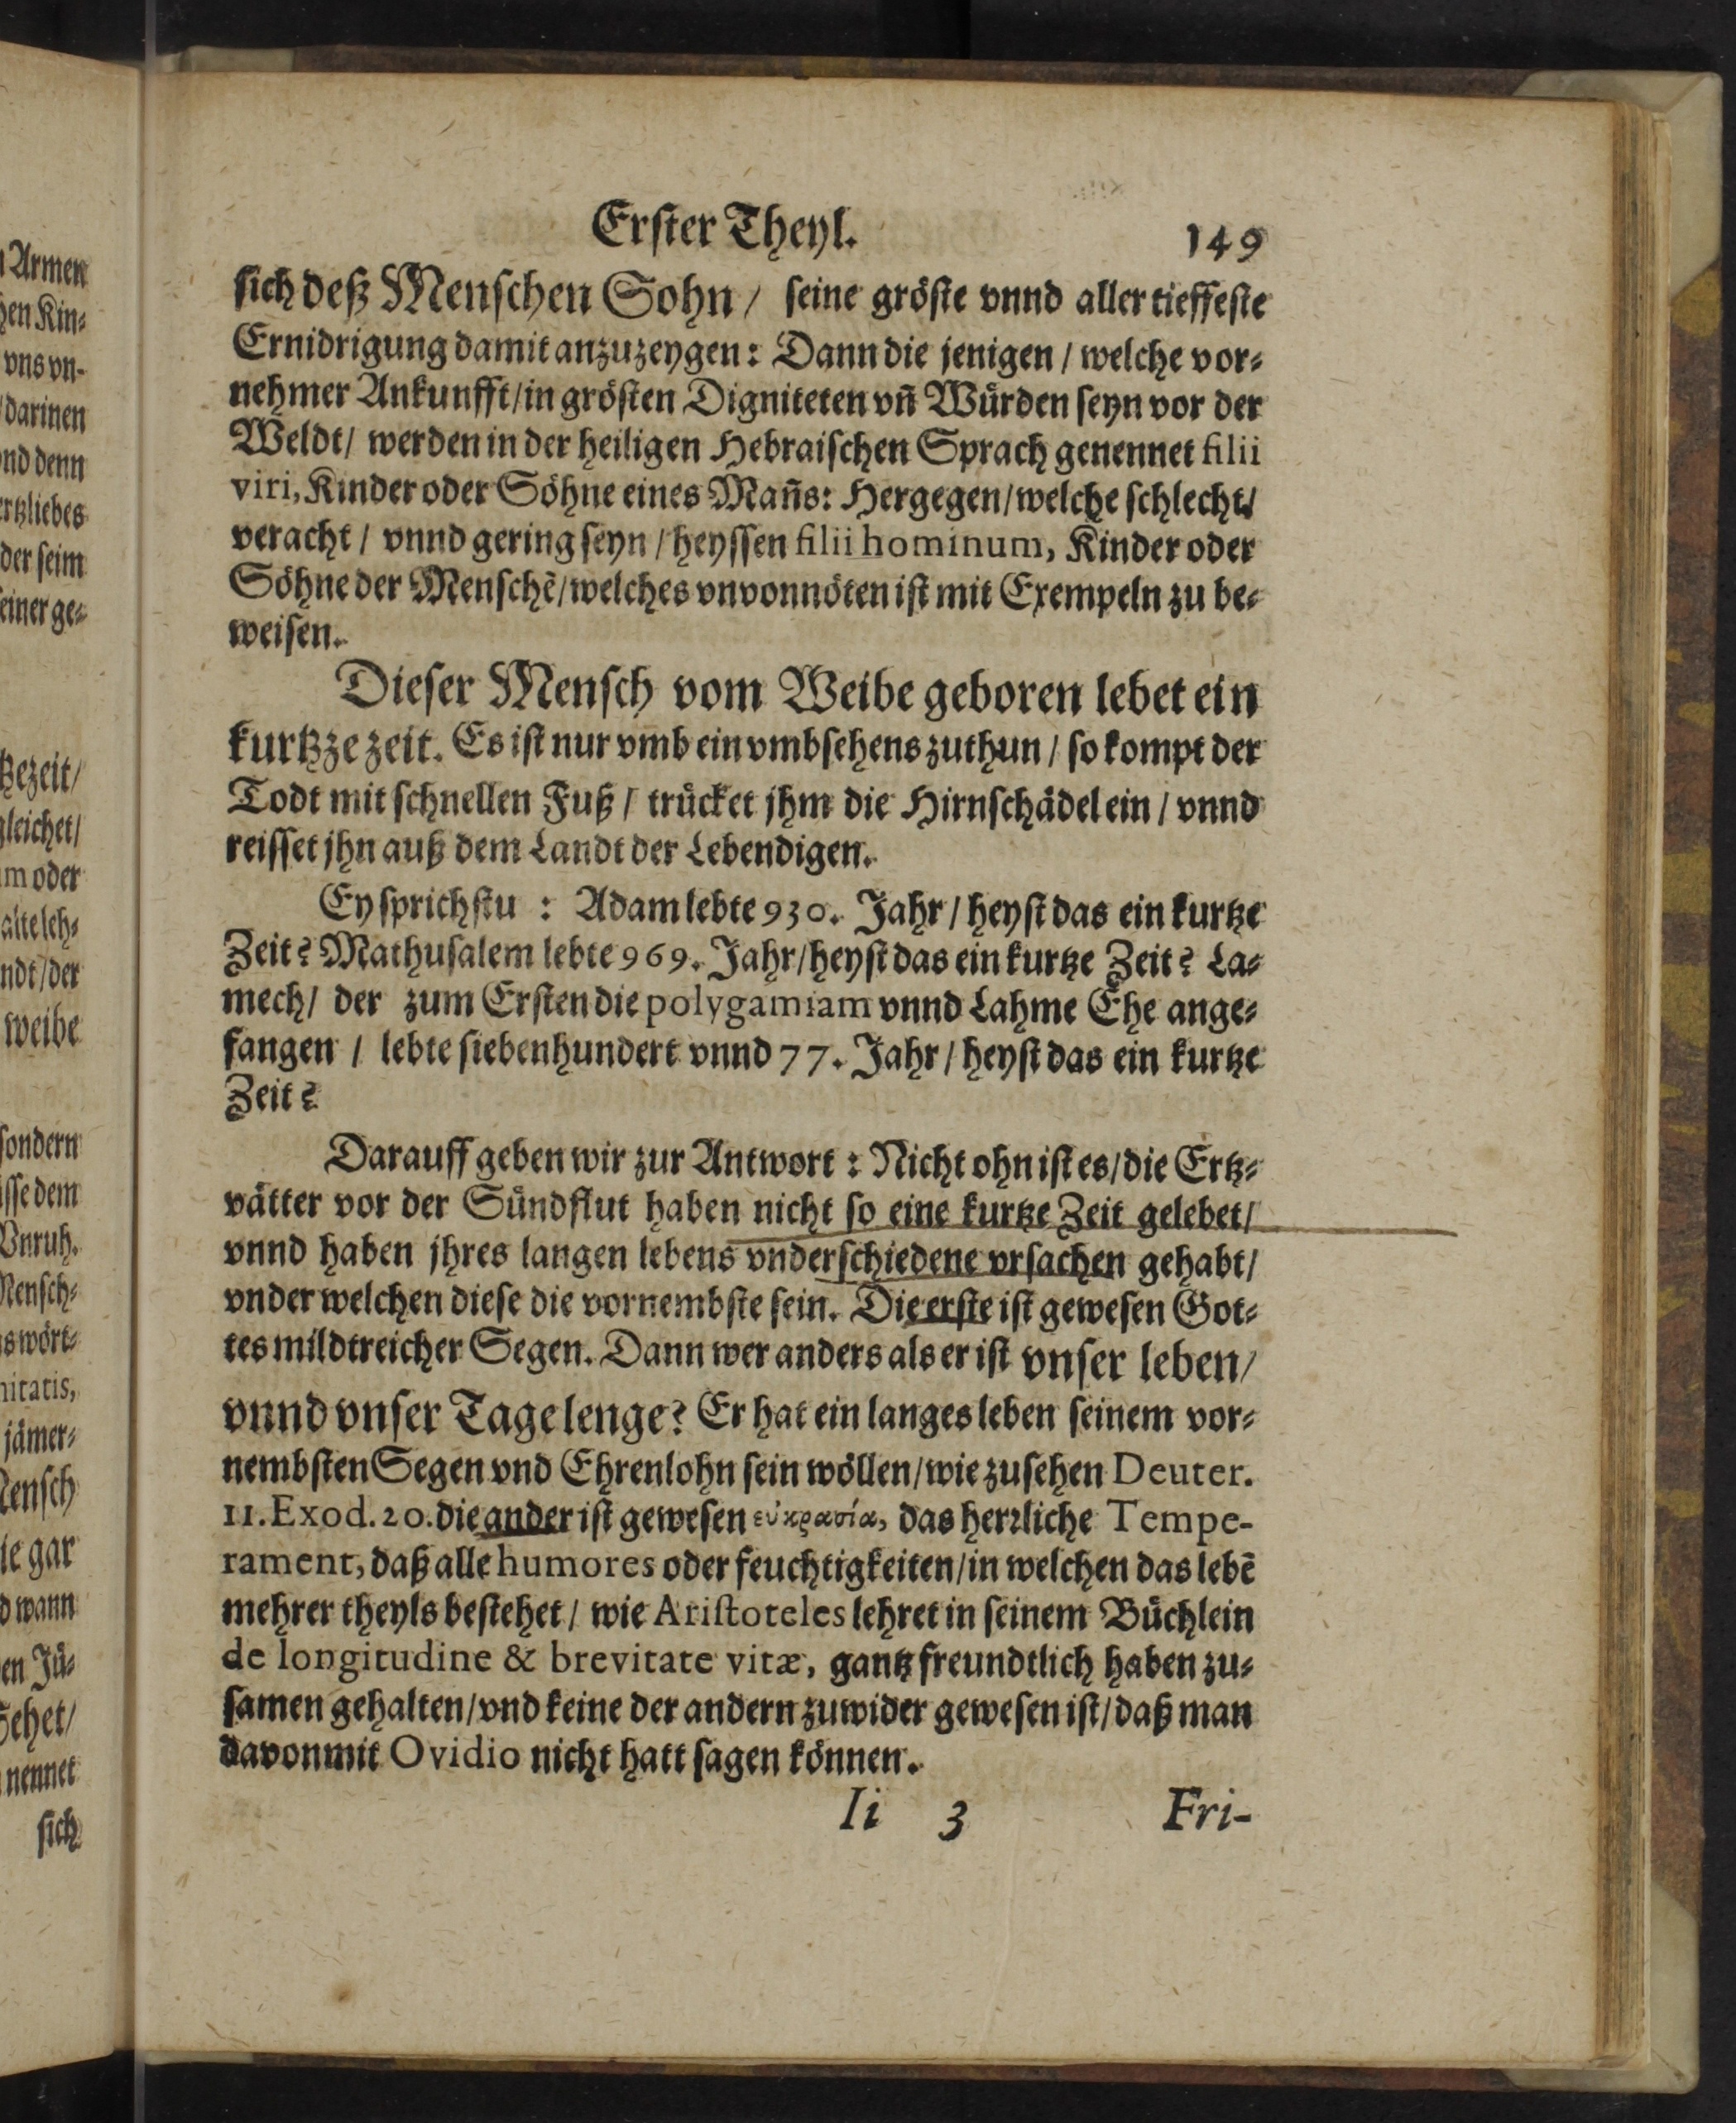 Erſter Theyl. 149
ſich deß Menſchen Sohn / ſeine gröſte vnnd aller tieffeſte
Ernidrigung damit anzuzeygen: Dann die jenigen / welche vor-
nehmer Ankunfft / in gröſten Digniteten vñ Würden ſeyn vor der
Weldt / werden in der heiligen Hebraiſchen Sprach genennet filii
viri, Kinder oder Söhne eines Mañs: Hergegen / welche ſchlecht /
veracht / vnnd gering ſeyn / heyſſen filii hominum, Kinder oder
Söhne der Menſchẽ / welches vnvonnöten iſt mit Exempeln zu be-
weiſen.
Dieſer Menſch vom Weibe geboren lebet ein
kurtzze zeit. Es iſt nur vmb ein vmbſehens zuthun / ſo kompt der
Todt mit ſchnellen Fuß / trücket jhm die Hirnſchädel ein / vnnd
reiſſet jhn auß dem Landt der Lebendigen.
Ey ſprichſtu : Adam lebte 930. Jahr / heyſt das ein kurtze
Zeit? Mathuſalem lebte 969. Jahr / heyſt das ein kurtze Zeit? La-
mech / der zum Erſten die polygamiam vnnd Lahme Ehe ange-
fangen / lebte ſiebenhundert vnnd 77. Jahr / heyſt das ein kurtze
Zeit?
Darauff geben wir zur Antwort : Nicht ohn iſt es / die Ertz-
vätter vor der Sündflut haben nicht ſo eine kurtze Zeit gelebet /
vnnd haben jhres langen lebens vnderſchiedene vrſachen gehabt /
vnder welchen dieſe die vornembſte ſein. Die erſte iſt geweſen Got-
tes mildtreicher Segen. Dann wer anders als er iſt vnſer leben /
vnnd vnſer Tage lenge? Er hat ein langes leben ſeinem vor-
nembſten Segen vnd Ehrenlohn ſein wöllen / wie zuſehen Deuter.
11. Exod. 20. die ander iſt geweſen εὐκρασία, das herꝛliche Tempe-
rament, daß alle humores oder feuchtigkeiten / in welchen das lebẽ
mehrer theyls beſtehet / wie Ariſtoteles lehret in ſeinem Büchlein
de longitudine & brevitate vitæ, gantz freundtlich haben zu-
ſamen gehalten / vnd keine der andern zuwider geweſen iſt / daß man
davon mit Ovidio nicht hatt ſagen können.
Ii 3 Fri-